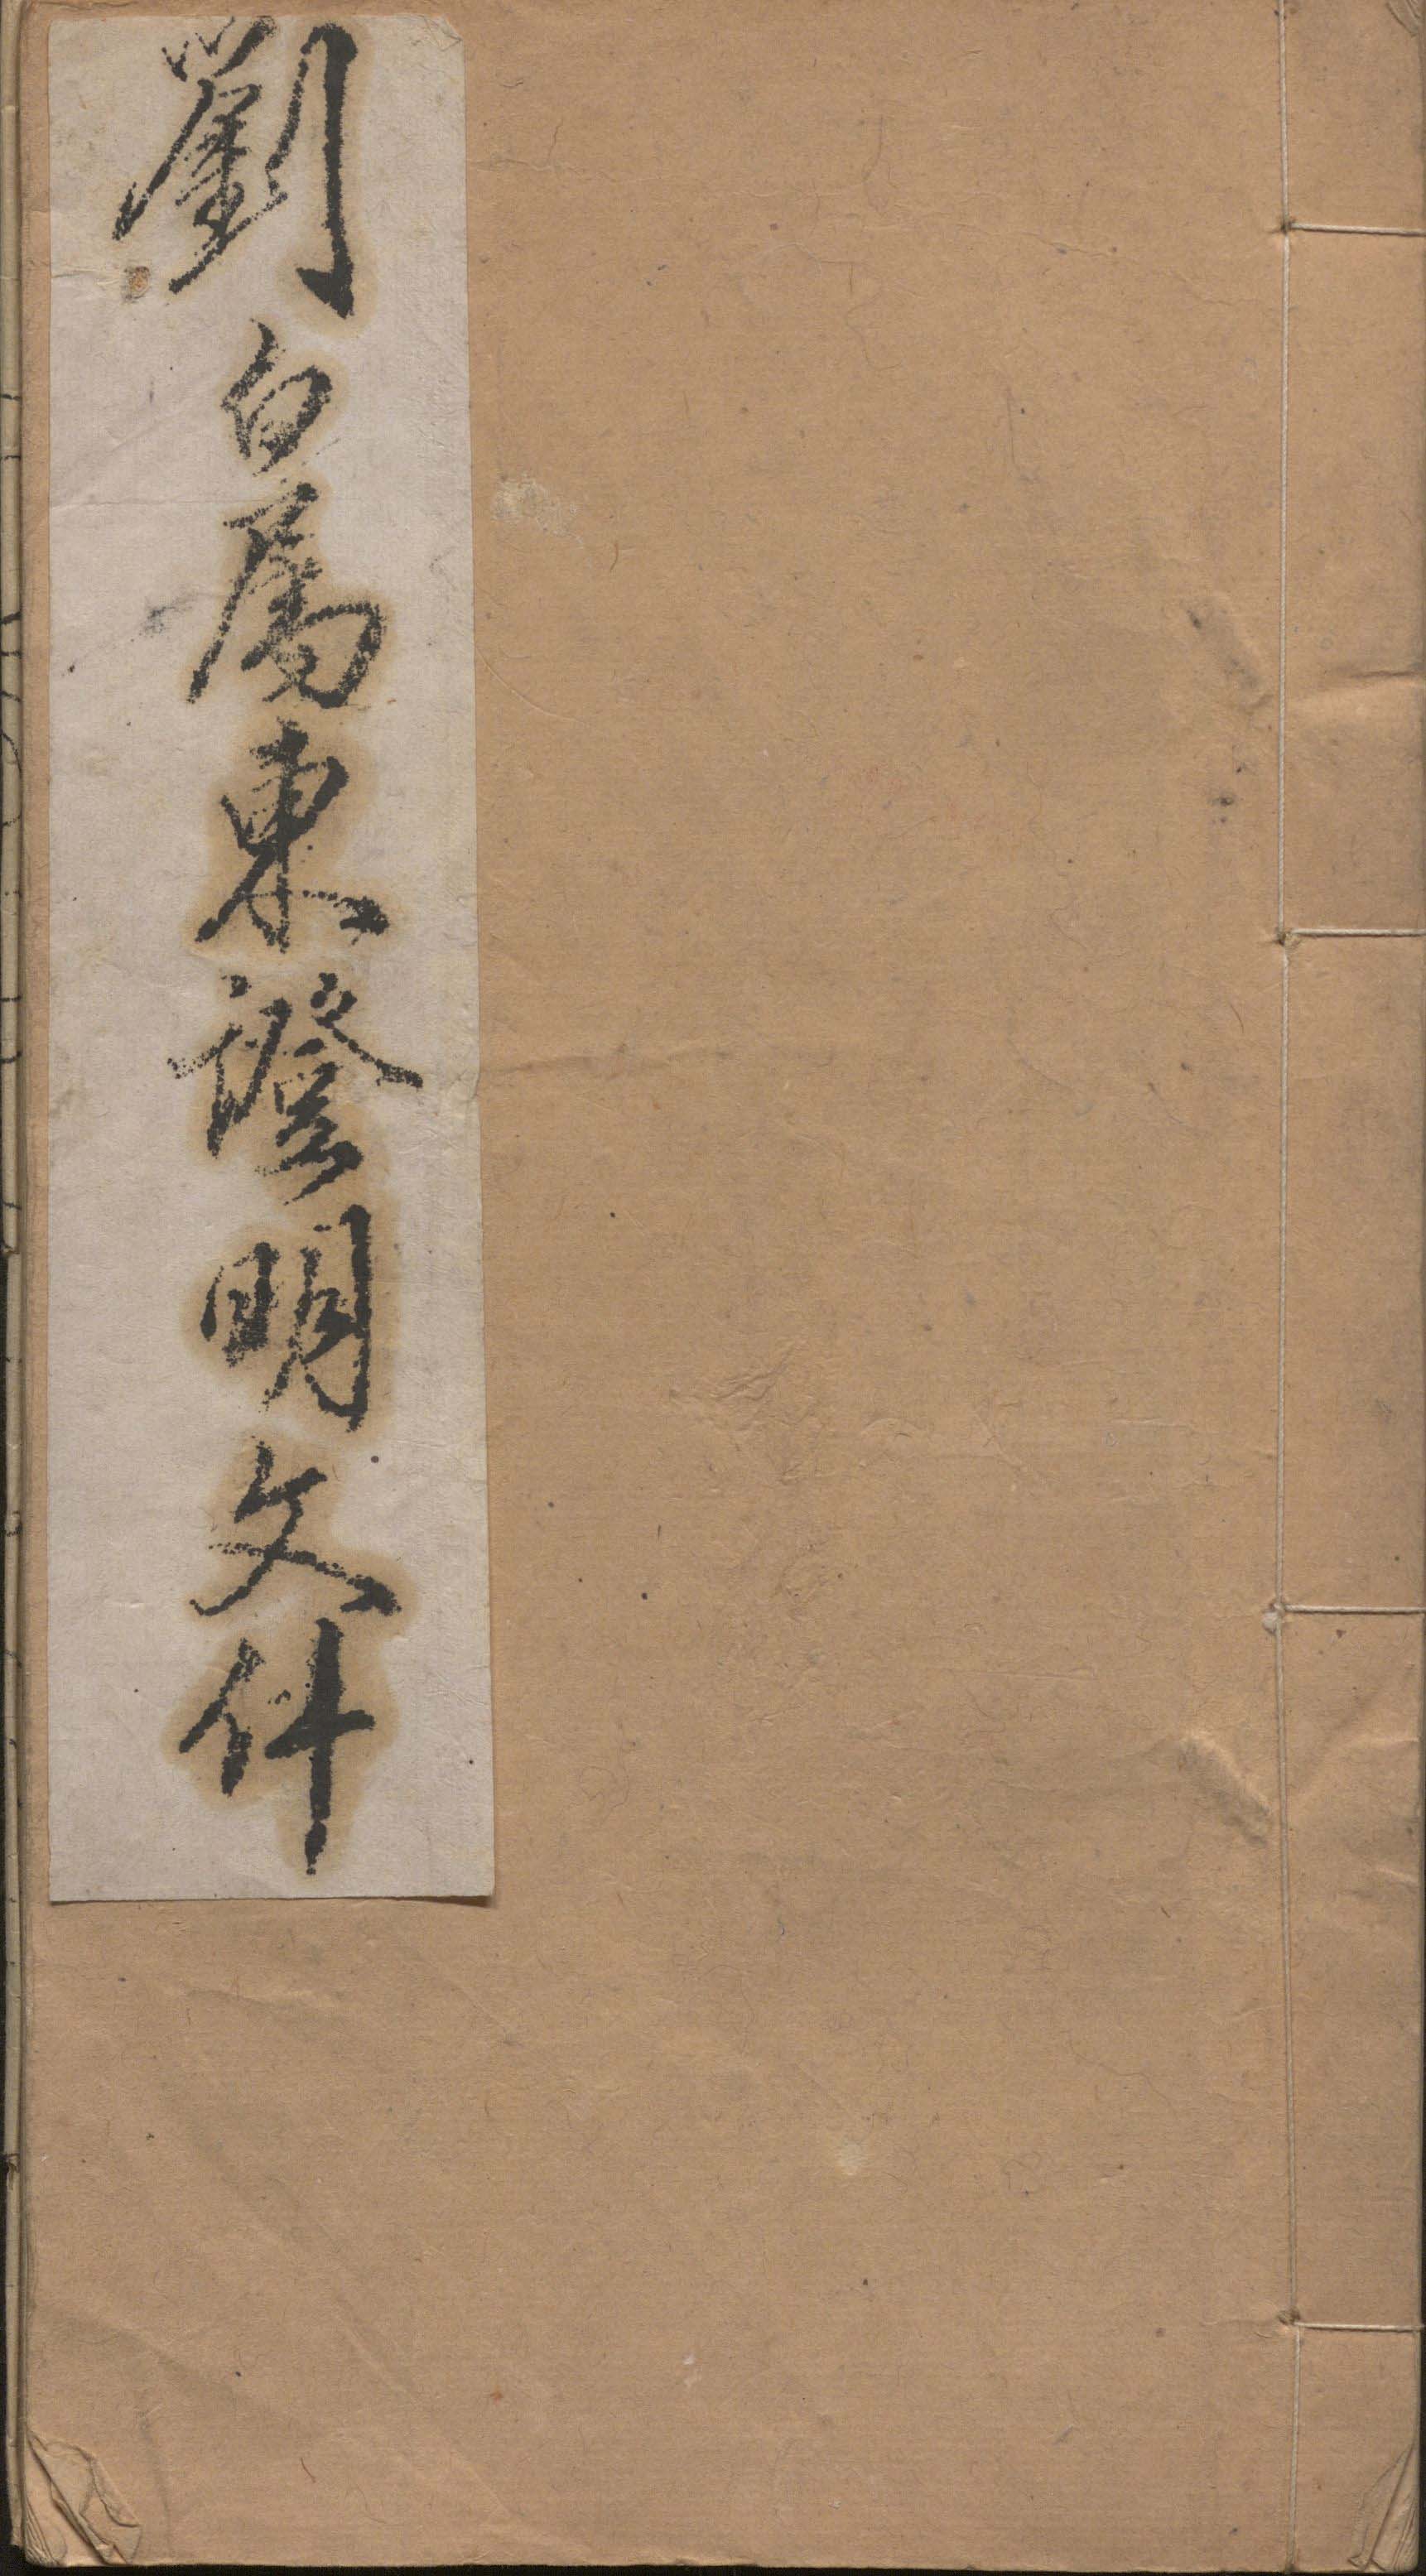 劉白属東證明文件